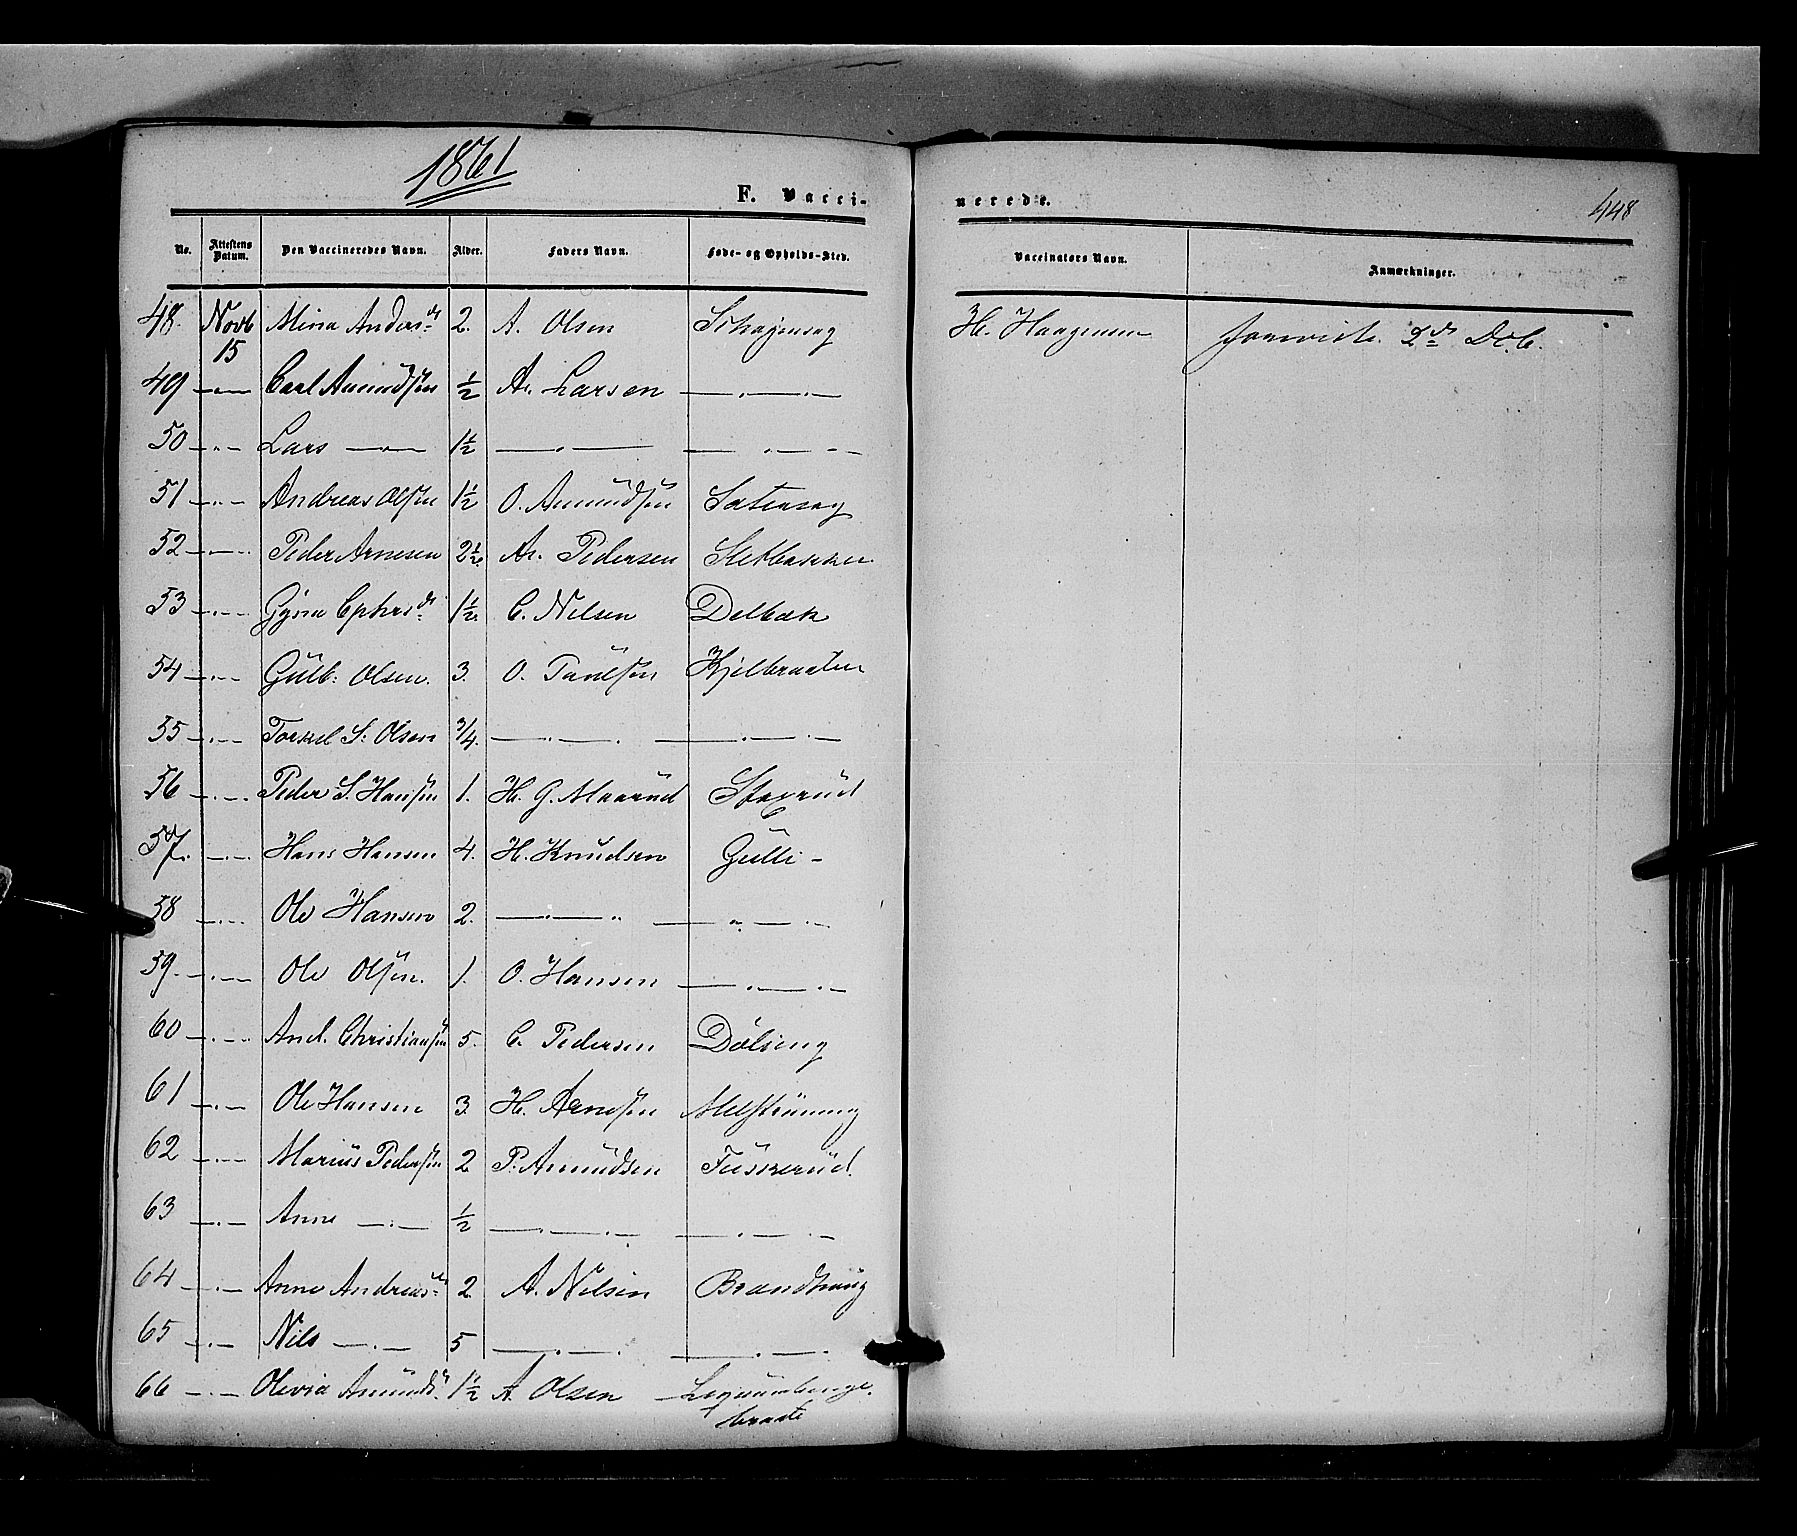 1861
F. Vaccinerede. 448
No. Attestens Datum. Den Vaccineredes Navn. Alder. Faders Navn. Føde- og Opholds-Sted. Vaccinators Navn. Anmærkninger.
48. Novb 15 Mina Anders d. 2. A. Olsen H. Haagensen 2d Dcb.
49 —"— Carl Amundsen ½ A. Larsen —"—
50 —"— Lars —"— 1½ —"— —"—
51 —"— Andreas Olsen 1½ O. Amundsen
52 —"— Peder Arnesen 2½ Ar. Pedersen Sletbakken
53 —"— 1½ C. Nilsen Delbæk
54 —"— Gulb. Olsen. 3. O. Paulsen Kjelbraaten
55 —"— Torkel S. Olsen ¾. —"— —"—
56 —"— Peder S. Hansen 1. H. G. Maarud Staxrud
57. —"— Hans Hansen 4. H. Knudsen Gulli -
58 —"— Ole Hansen 2. —"— —"—
59. —"— Ole Olsen. 1. O. Hansen —"—
60 —"— And. Christiansen 5. C. Pedersen Dølseng
61 —"— Ole Hansen 3. H. Arnesen
62 —"— Marius Pedersen 2 P. Amundsen Fuskerud.
63 —"— Anne —"— ½ —"— —"—
64 —"— Anne Andreas d. 2. A. Nilsen Brandhaug
65 —"— Nils —"— 5 —"— —"—
66 —"— Olivia Amunds d. 1½ A. Olsen
braate